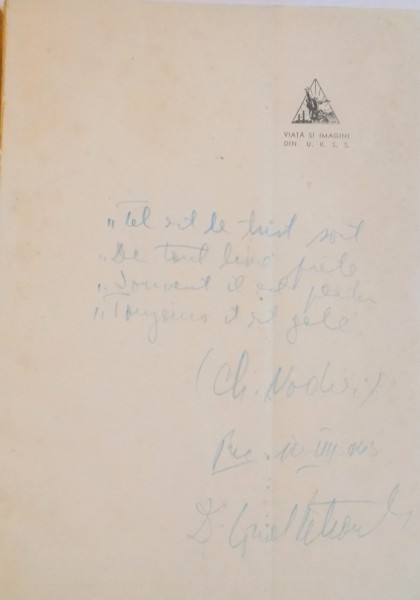 VIAȚĂ ȘI IMAGINI
DIN U. R. S. S.
„Tel est le triste sort
„De tout livre prêté
„Souvent il est perdu
„Toujours il est gâté.
(Ch. Nodier)
Buc. 10 III
D.